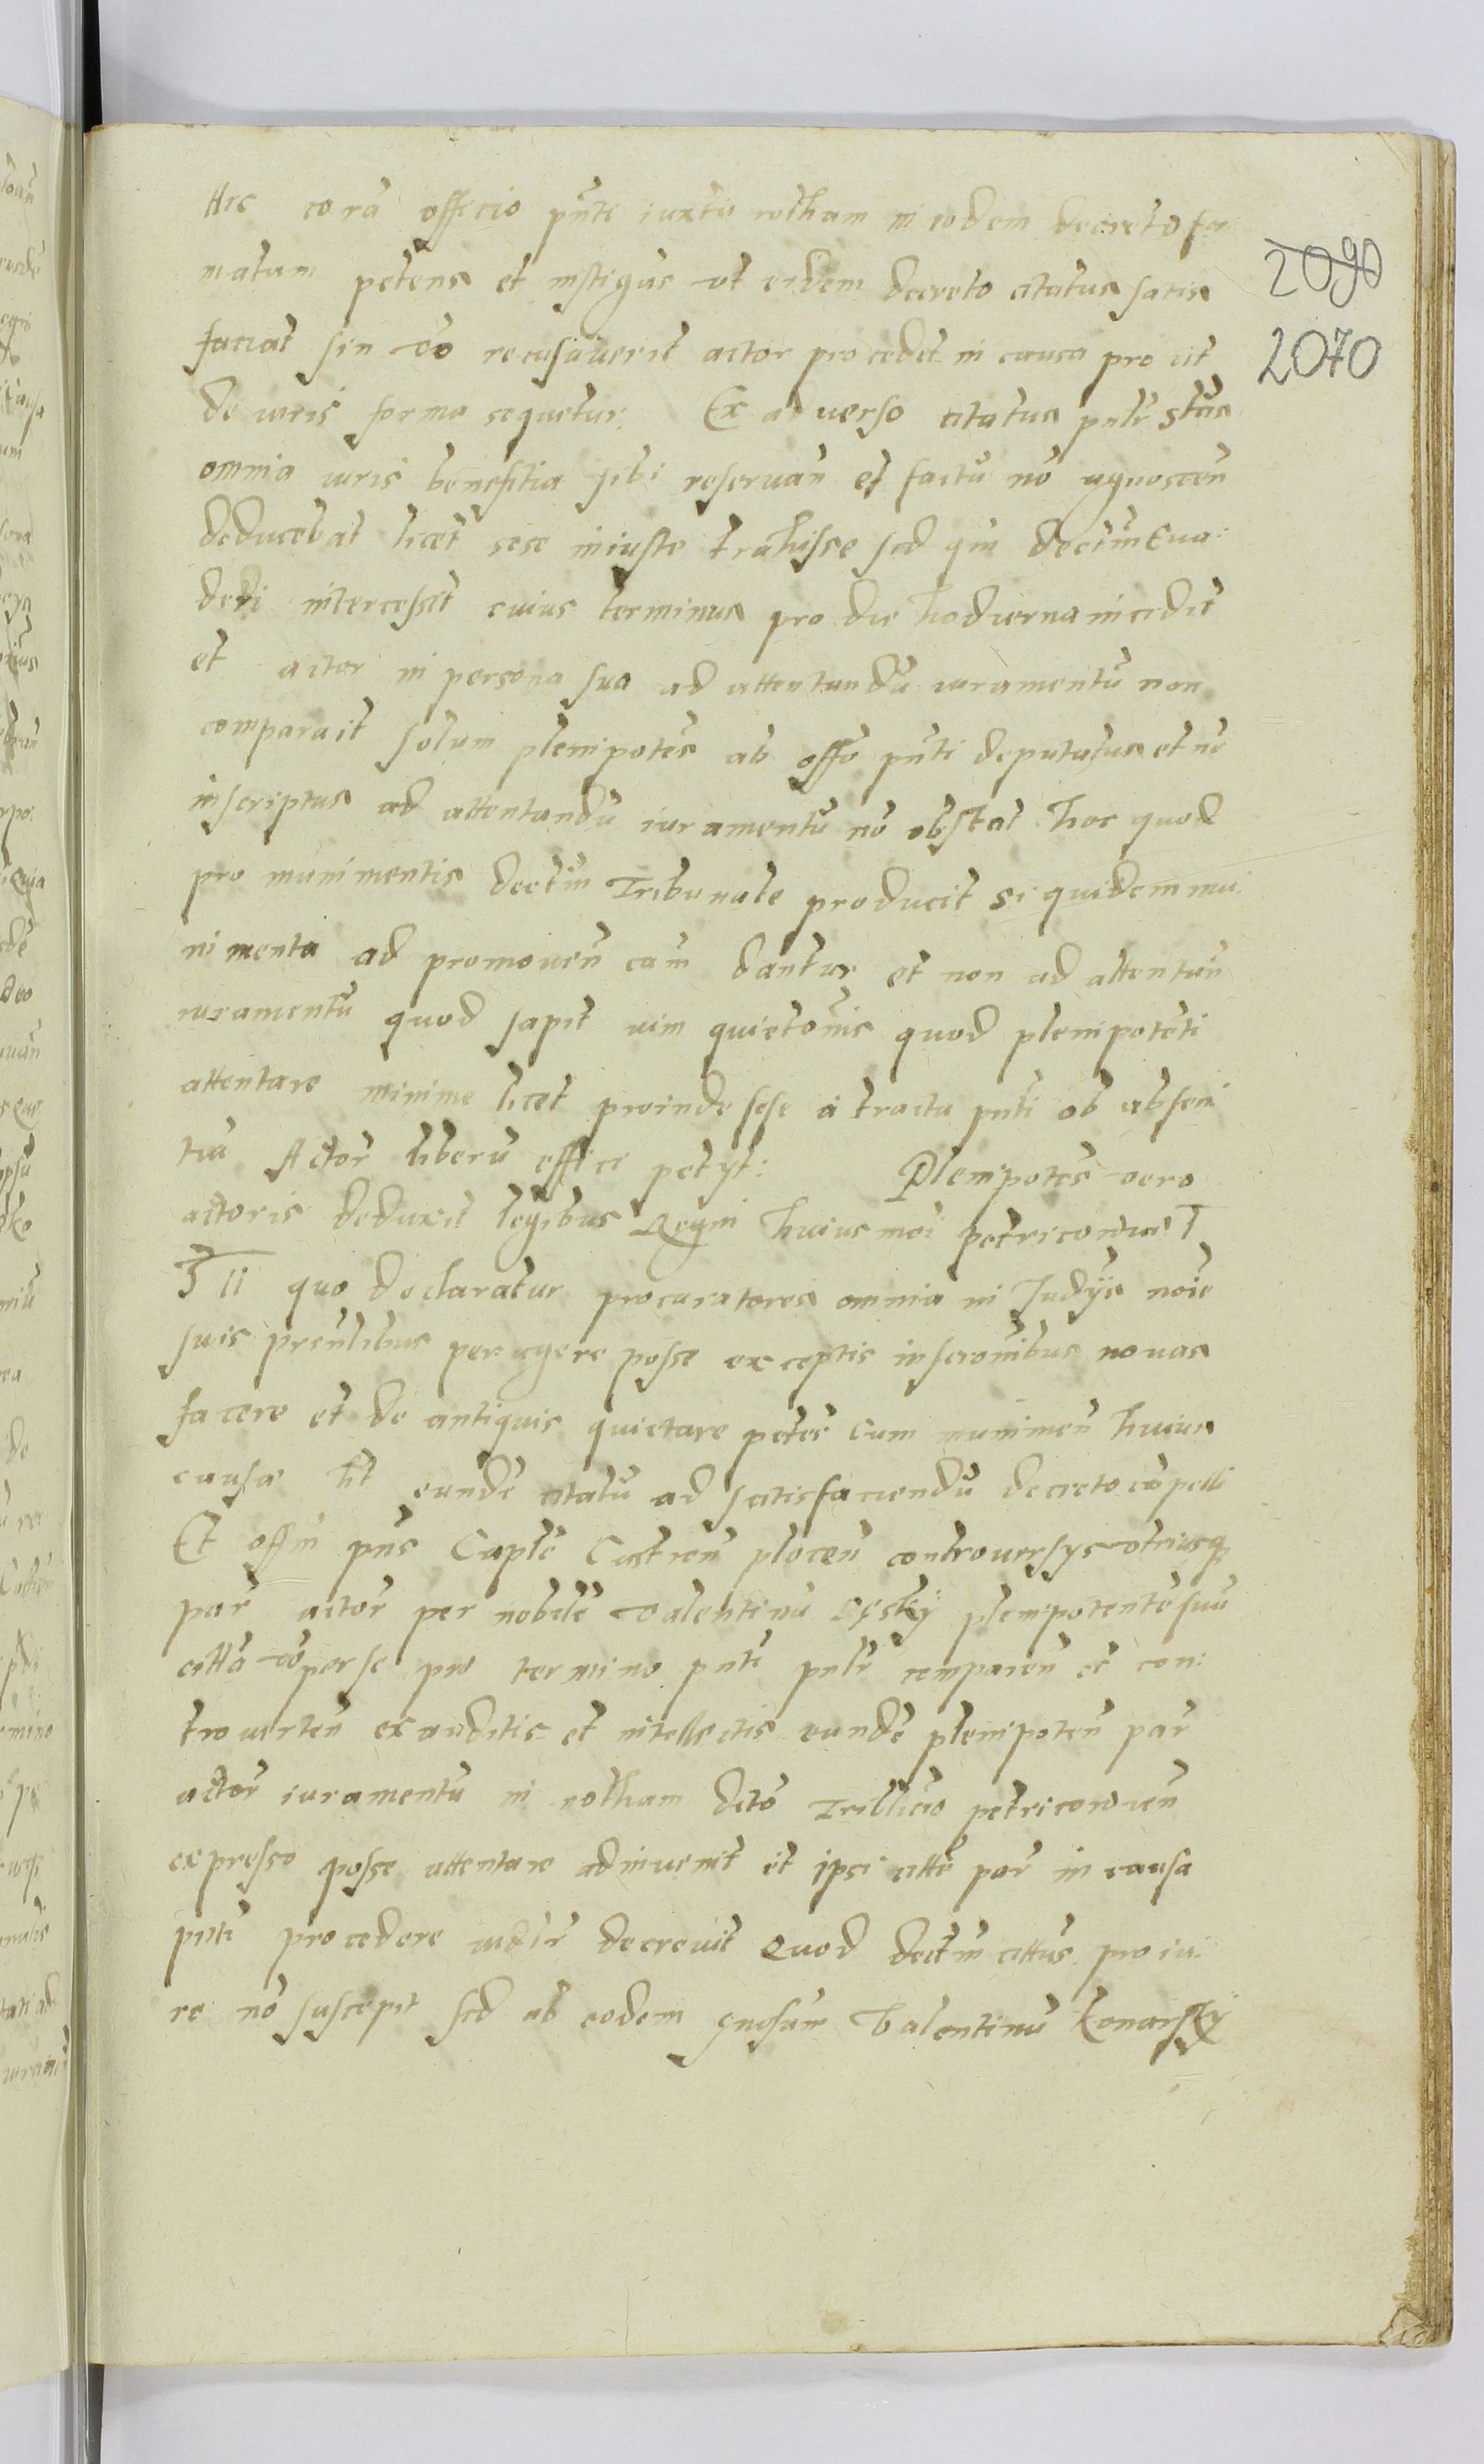 Hic corā officio pn̄ti iuxta rotham in eodem decreto for
matam petens et instigās vt eidem decreto citatus satis
faciat sin vō recusaverit actor procedet in causa pro vt
de iuris forma sequetur. Ex adverso citatus pnlr stās
omnia iuris benefitia sibi reservan̄ et factū nō agnoscen̄
deducebat licet sese iniuste trahisse sed qm̄ decm̄
intercessit cuius terminus pro die hodierna incidit
et actor in persona sua ad attentandū iuramentū non
comparuit solum plenipotēs ab offō pn̄ti deputatus et nō
inscriptus ad attentandū iuramentū nō obstat hoc quod
pro munimentis dectm̄ Tribunale producit siquidem mu
nimenta ad promoven̄ cam̄ dantur et non ad attentan̄
iuramentū quod sapit vim quietōnis quod plenipotēti
attentare minime licet proinde sese à tractu pn̄ti ob absen
tia Actor̄ liberū effici petyt: Plenipotēs vero
actoris deduxit legibus Regni huiusmōi petricovien̄
quo declaratur procuratores omnia in Judiis noīe
suis pren̄libus peragere posse exceptis inscrōnibus novas
facere et de antiquis quietare petēs cum munimen̄ huius
causæ sit eundē citatū ad satisfaciendū decreto cōpelli
Et offm̄ pn̄s Capłe Castren̄ plocen̄ controversys vtriusq
par̄ actor̄ per nobilē Valentinū plenipotentē suū
cittā vō per se pro termino pn̄ti pnlr comparen̄ et con:
troverten̄ exauditis et intellectis eundē plenipoten̄ par̄
actor̄ iuramentū in rotham dctō petricovien̄
expresso posse attentare adinvenit et ipsi cittē par̄ in causa
pn̄ti procedere decrevit Quod dectm̄ cittūs pro iu:
re nō suscepit sed ab eodem gn̄osum Valentinū Konarsky
2090
2070